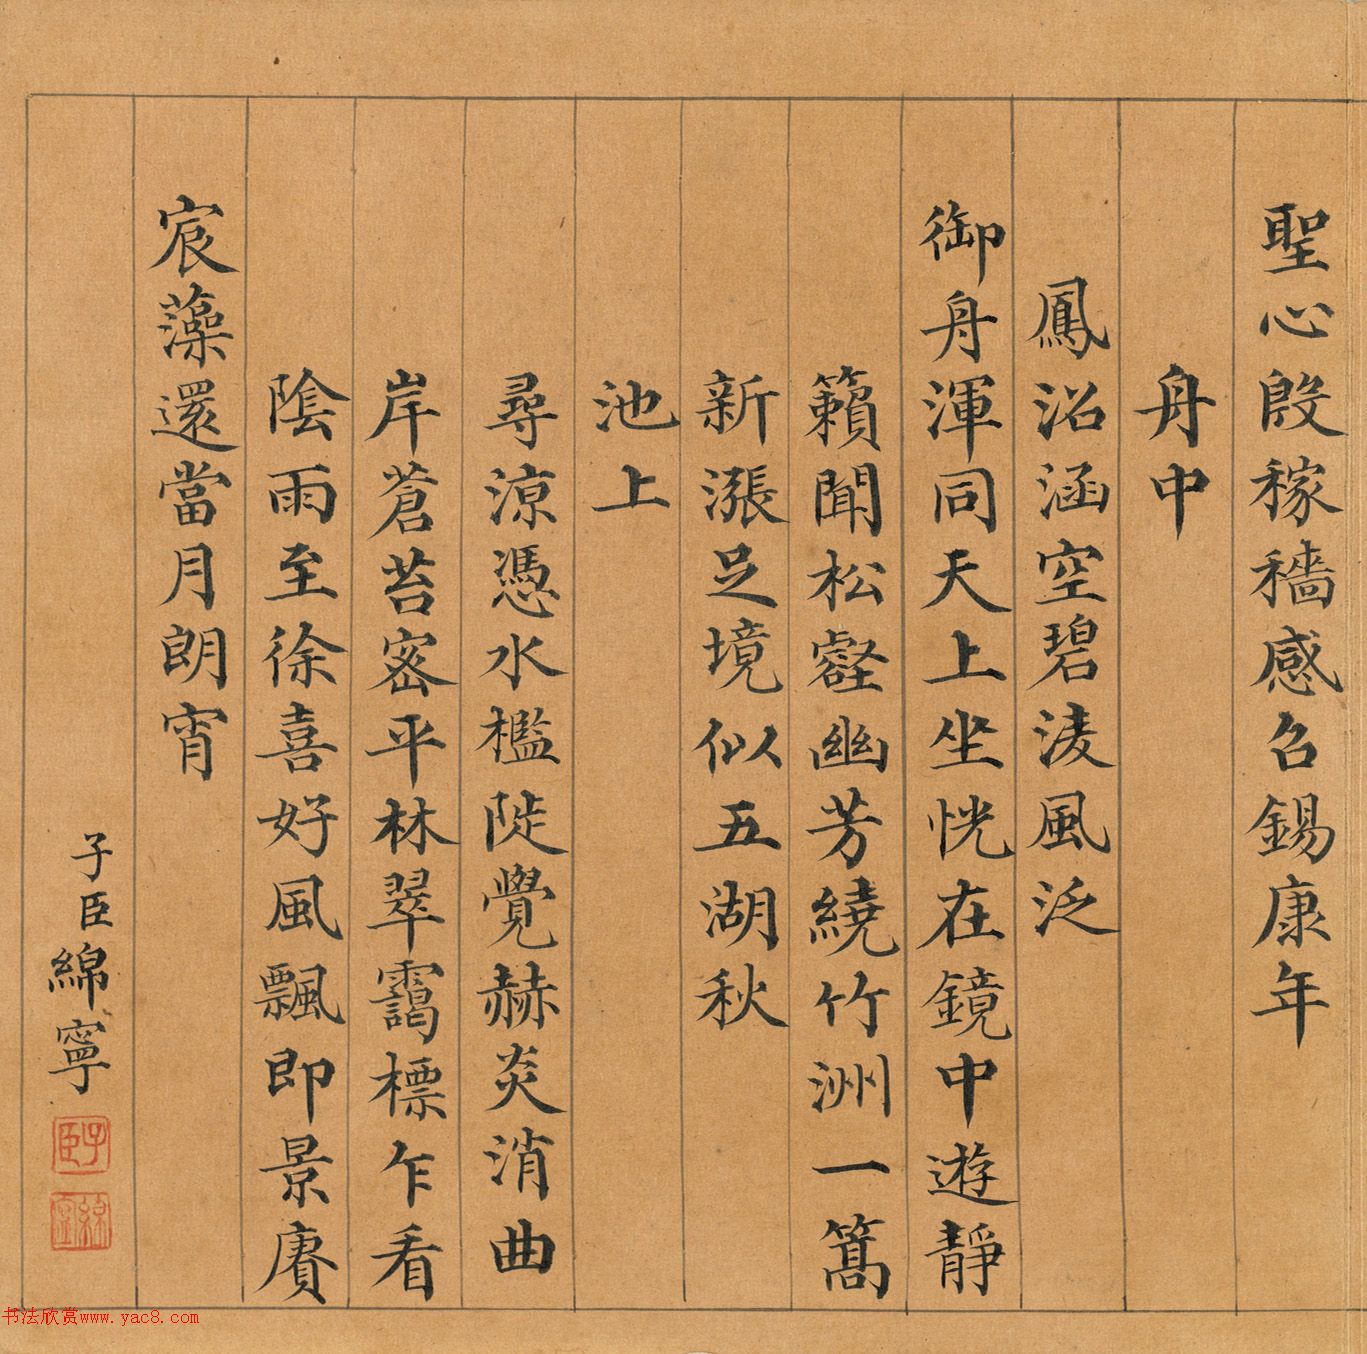 聖心殷稼穡感召錫康年
舟中
鳳沼涵空碧淩風泛
御舟渾同天上坐恍在鏡中遊靜
籟聞松壑幽芳繞竹洲一篙
新漲足境似五湖秋
池上
尋涼憑水檻陡覺赫炎消曲
岸蒼苔密平林翠靄標乍看
陰雨至徐喜好風飄即景賡
宸藻還當月朗宵
子臣綿寧
子臣
綿寧
书法欣赏www.yac8.com